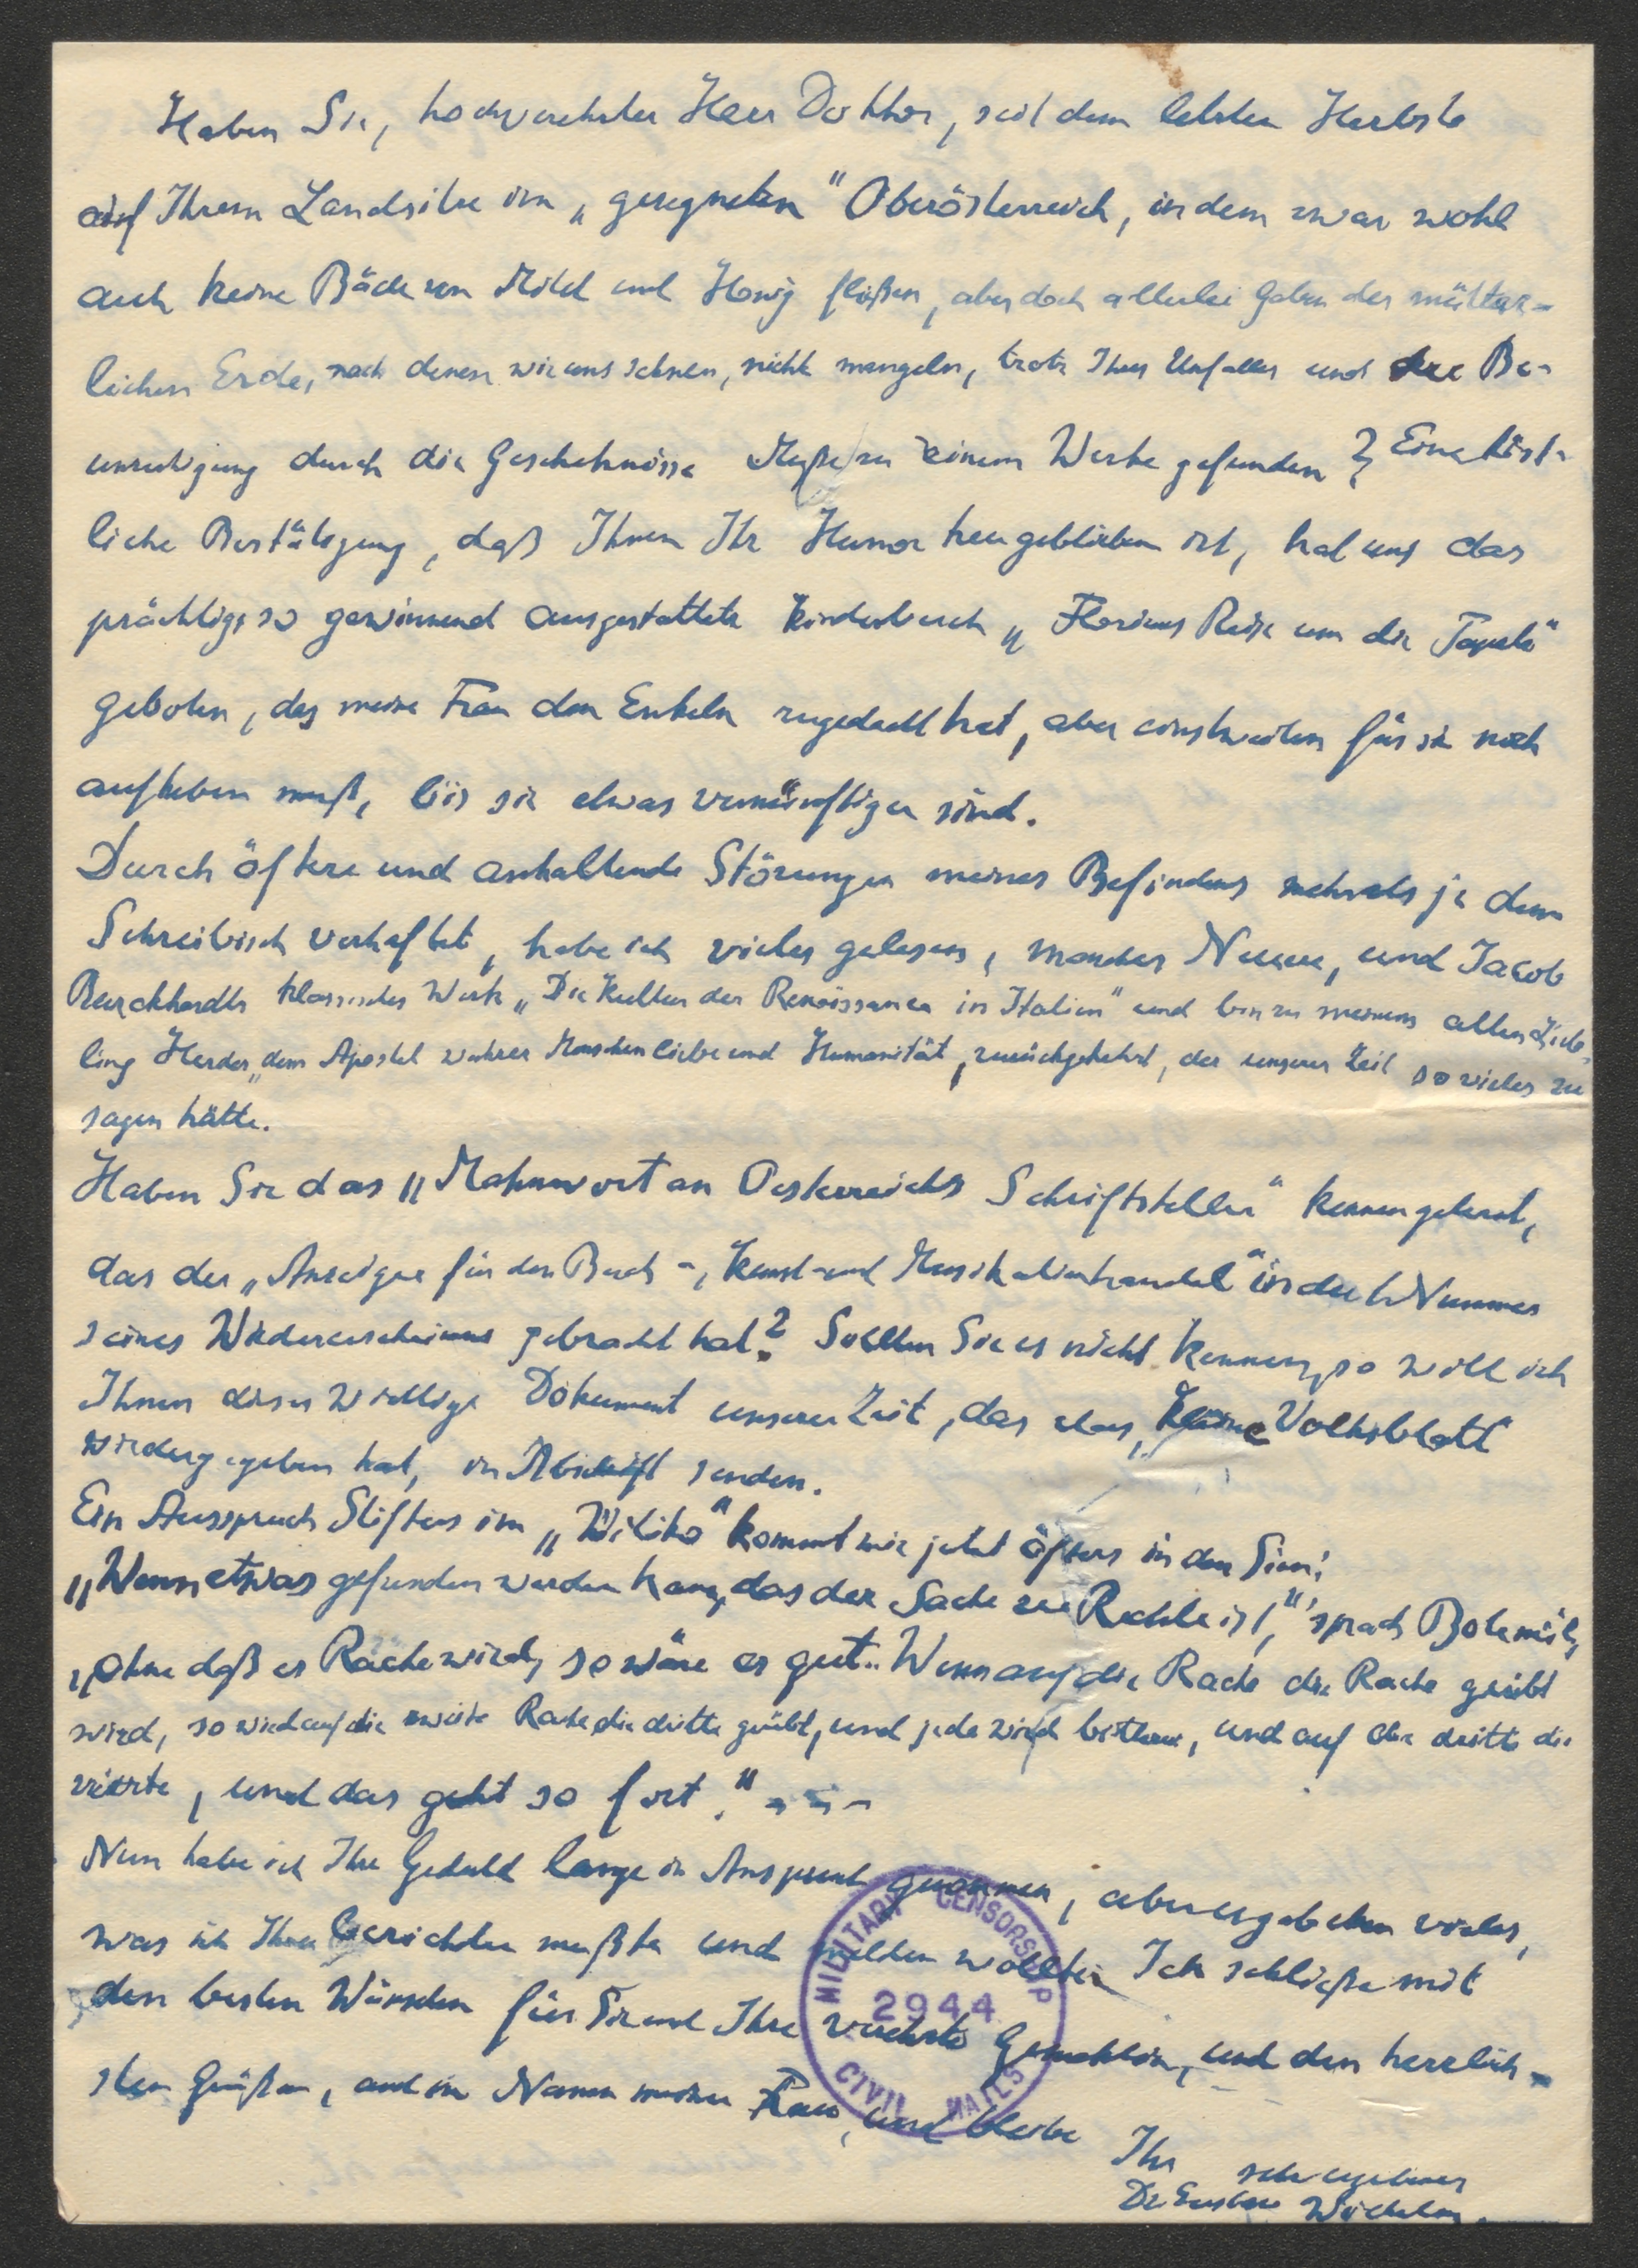 Haben Sie, hochverehrter Herr Doktor, seit dem letzten Herbste
auf Ihrem Landsitze im „gesegneten" Oberösterreich, in dem zwar wohl
auch keine Bäche von Milch und Honig fließen, aber doch allerlei Gaben der mütter-
lichen Erde, nach denen wir uns sehnen, nicht mangeln, trotz Ihres Unfalles und der Be-
unruhigung durch die Geschehnisse Muße zu einem Werke gefunden? Eine köst-
liche Bestätigung, daß Ihnen Ihr Humor treu geblieben ist, hat uns das
prächtige, so gewinnend ausgestattete Kinderbuch „Florians Reise um die Tapete"
geboten, das meine Frau den Enkeln zugedacht hat, aber einstweilen für sie noch
aufheben muß, bis sie etwas vernünftiger sind.
Durch öftere und anhaltende Störungen meines Befindens mehr als je dem
Schreibtisch verhaftet, habe ich vieles gelesen, manches Neue, und Jacob
Burckhardts klassisches Werk „Die Kultur der Renaissance in Italien" und bin zu meinem alten Lieb-
ling Herder, dem Apostel wahrer Menschenliebe und Humanität, zurückgekehrt, der unserer Zeit so vieles zu
sagen hätte.
Haben Sie das „Mahnwort an Oesterreichs Schriftsteller" kennen gelernt,
das der „Anzeiger für den Buch-, Kunst- und Musikalienhandel" in der 1. Nummer
seines Wiedererscheinens gebracht hat? Sollten Sie es nicht kennen, so will ich
Ihnen dieses wichtige Dokument unserer Zeit, das das „Kleine Volksblatt"
wiedergegeben hat, in Abschrift senden.
Ein Ausspruch Stifters im „Witiko" kommt mir jetzt öfters in den Sinn:
„Wenn etwas gefunden werden kann, das der Sache zu Rechte ist," sprach Bolemil,
„ohne daß es Rache wird, so wäre es gut.. Wenn auf die Rache die Rache geübt
wird, so wird auf die zweite Rache die dritte geübt, und jede wird bitterer, und auf die dritte die
vierte, und das geht so fort." - - -
Nun habe ich Ihre Geduld lange in Anspruch genommen, aber es gab eben vieles,
was ich Ihnen berichten mußte und melden wollte. Ich schließe mit
den besten Wünschen für Sie und Ihre verehrte Gemahlin, und den herzlich-
sten Grüßen, auch im Namen meiner Frau, und bleibe
Ihr sehr ergebener
Dr Gustav Wilhelm.
MILITARY CENSORSHIP
2944
CIVIL MAILS